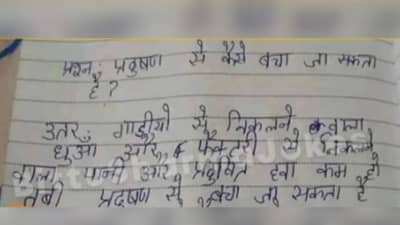 प्रश्न: प्रदुषण से कैसे बचा जा सकता
है?
उतर: गाड़ीयो से निकलने वाला
धुआ और फैक्टरी से निकलने
वाला पानी और प्रदुषित हवा कम हो
तबी प्रदषण से बचा जा सकता है